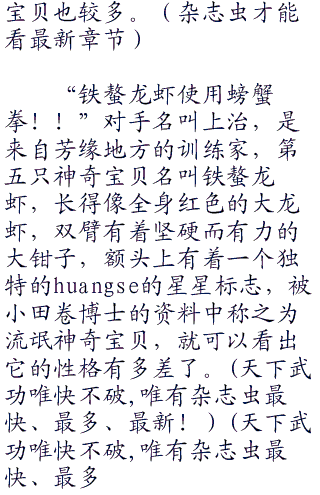 宝贝也较多。（杂志虫才能
看最新章节）
“铁螯龙虾使用螃蟹
拳！！”对手名叫上治，是
来自芳缘地方的训练家，第
五只神奇宝贝名叫铁螯龙
虾，长得像全身红色的大龙
虾，双臂有着坚硬而有力的
大钳子，额头上有着一个独
特的huangse的星星标志，被
小田卷博士的资料中称之为
流氓神奇宝贝，就可以看出
它的性格有多差了。(天下武
功唯快不破,唯有杂志虫最
快、最多、最新！)(天下武
功唯快不破,唯有杂志虫最
快、最多